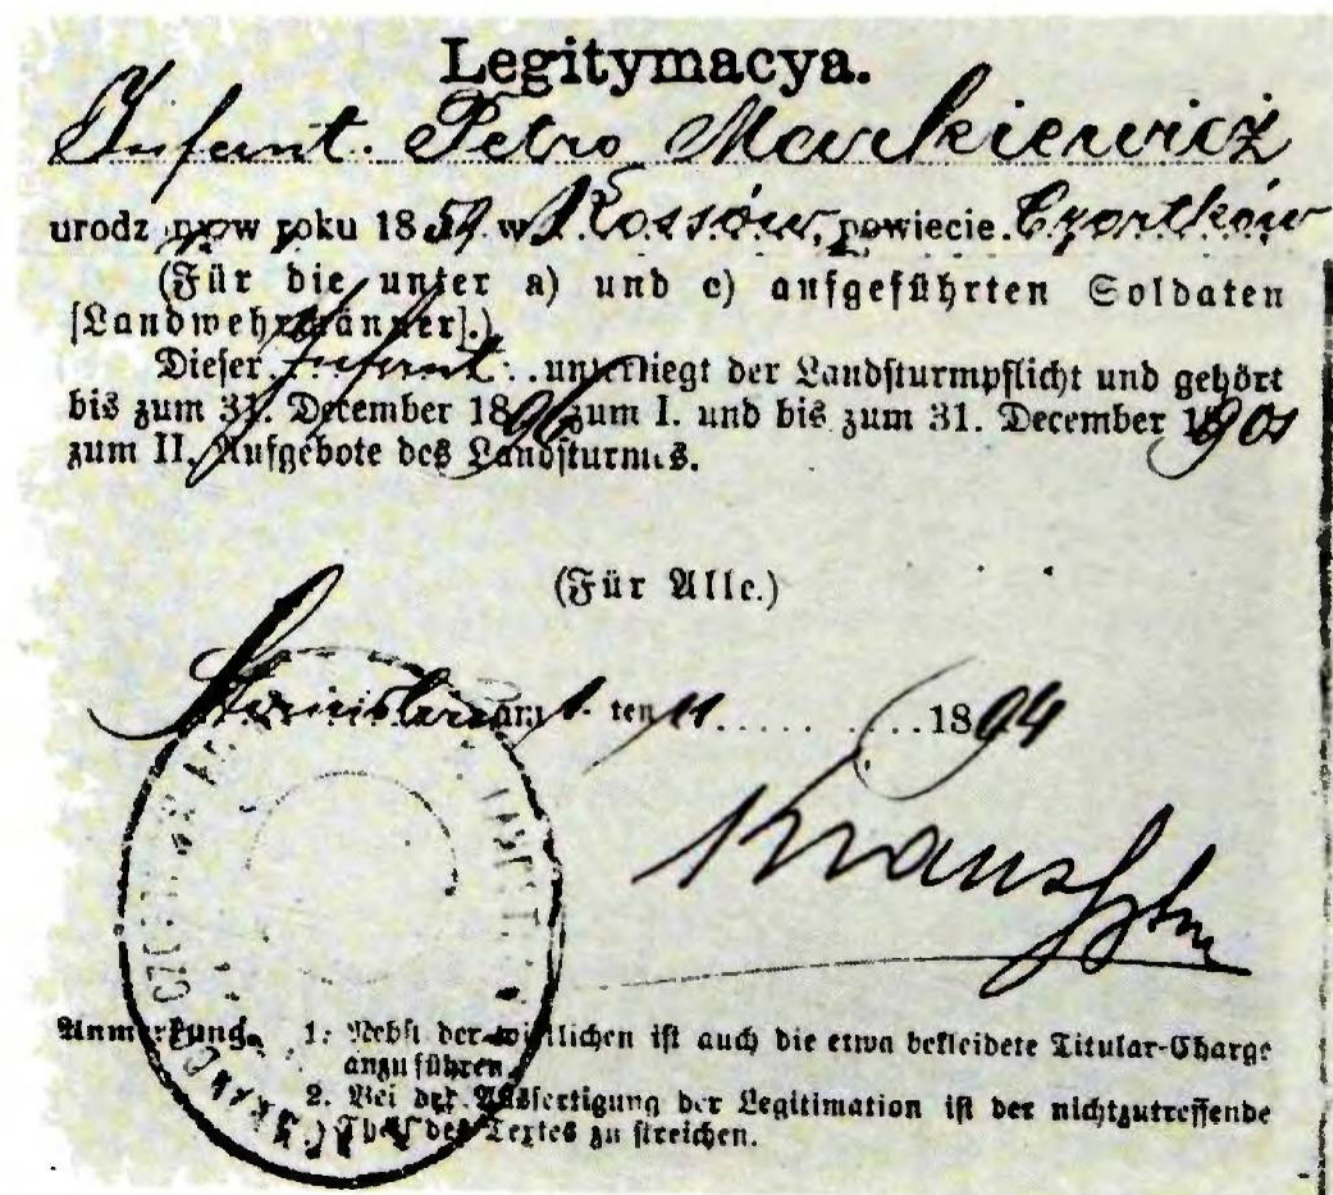 Legitymacya.
Infant. Petro Markiewicz
urodzony w roku 1859 w Kossów, powiecie Czortków
(Für die unter a) und c) aufgeführten Soldaten
[Landwehrmänner].)
Dieser Infant. unterliegt der Landsturmpflicht und gehört
bis zum 31. December 1896 zum I. und bis zum 31. December 1901
zum II. Aufgebote des Landsturmes.
(Für Alle.)
am 1. ten 11 1894
Anmerkung. 1. Nebst der wirklichen ist auch die etwa bekleidete Titular-Charge
anzuführen.
2. Bei der Ausfertigung der Legitimation ist der nichtzutreffende
Theil des Textes zu streichen.